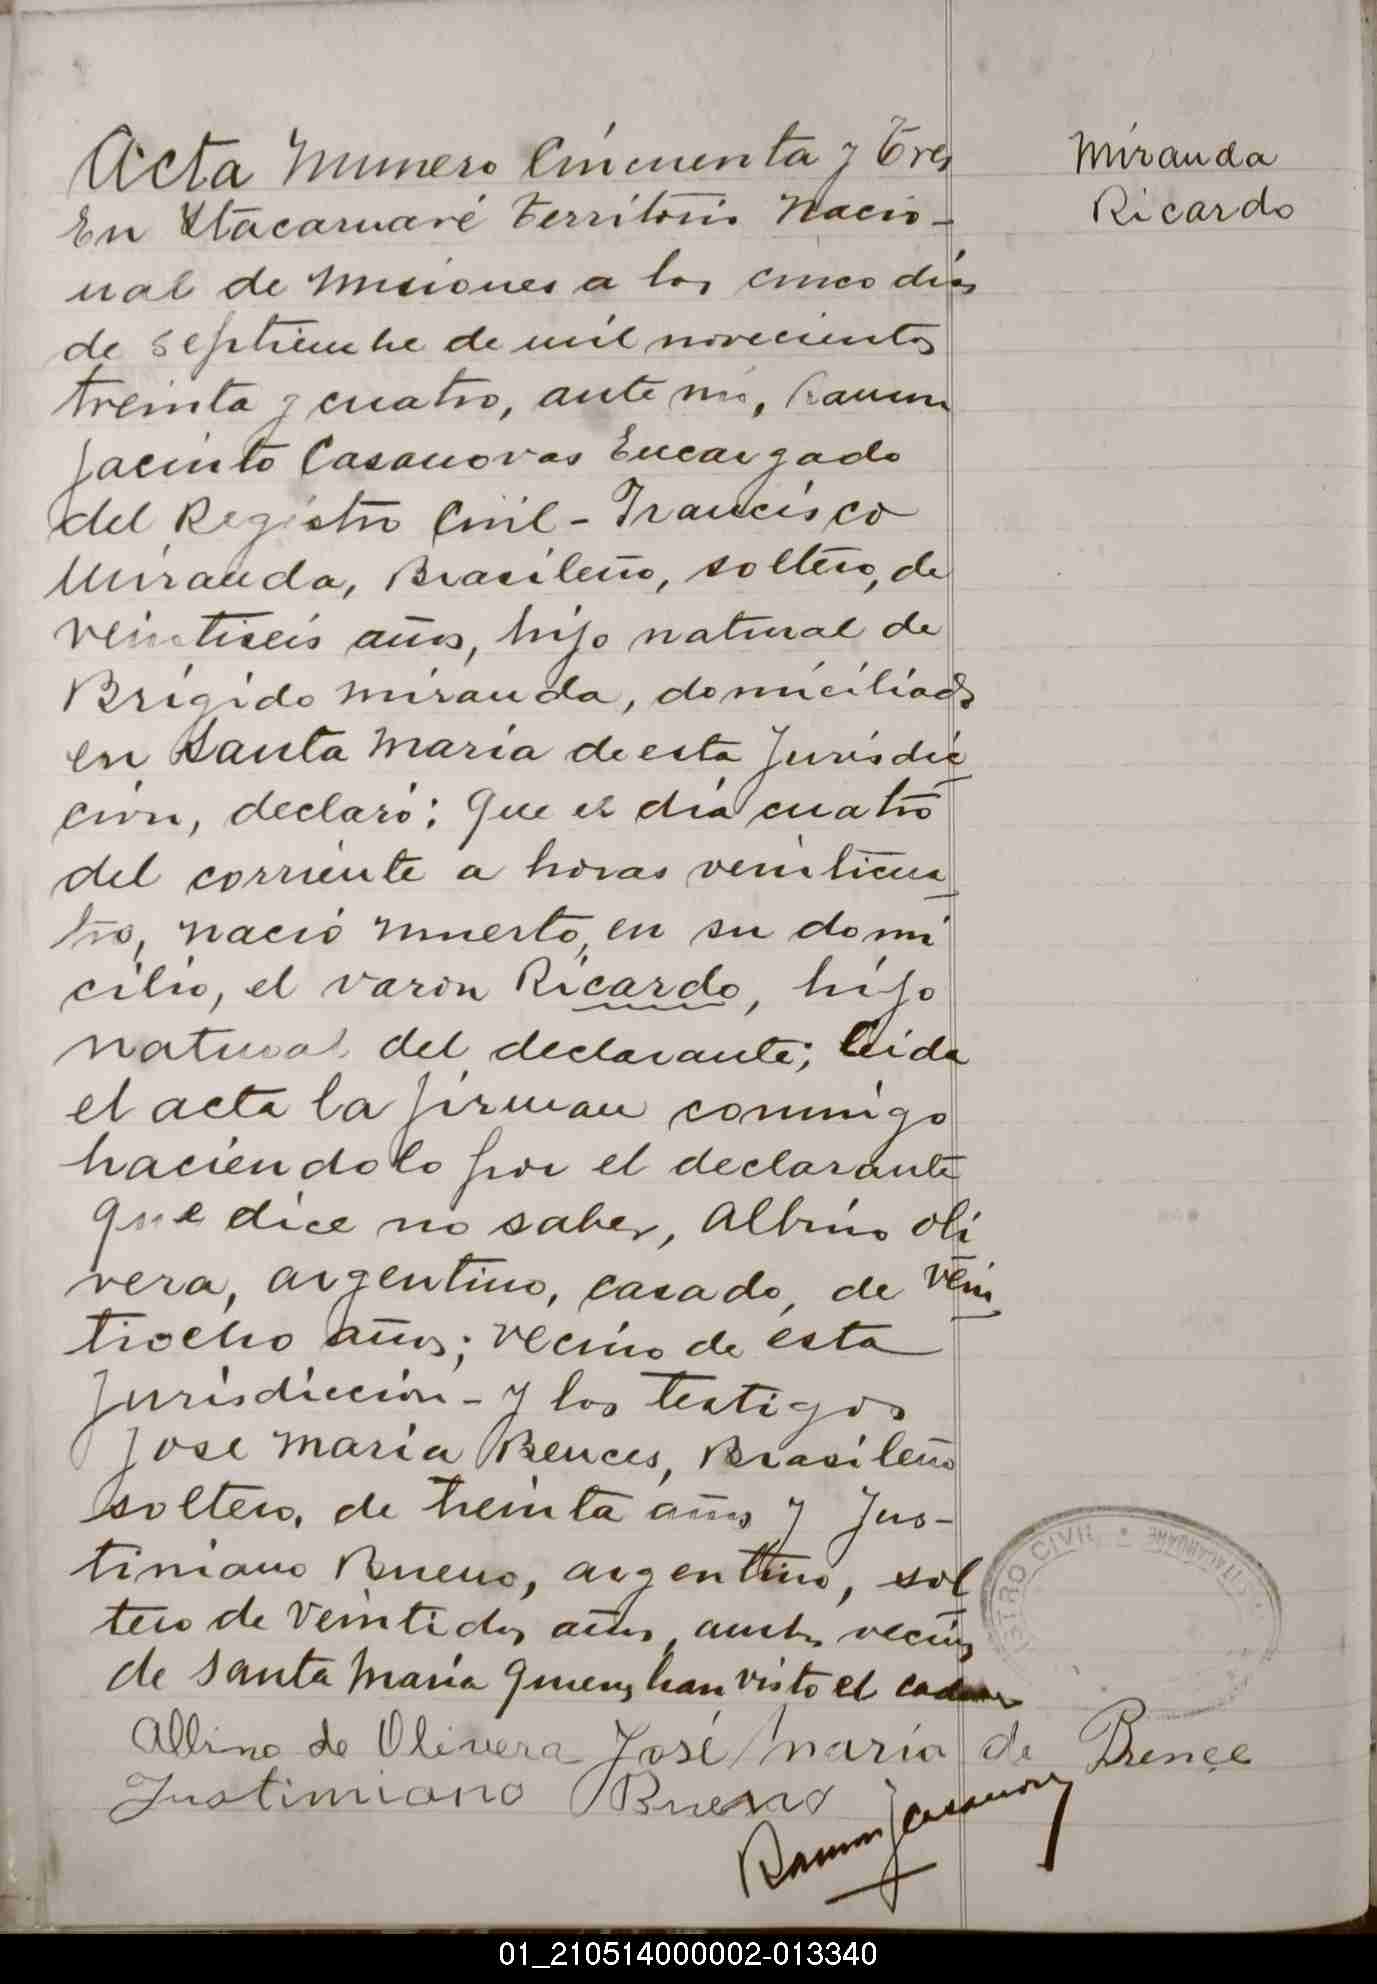 Acta Numero Cincuenta y Tres
Miranda
Ricardo
En Itacaruaré Territorio Nacio-
nal de Misiones a los cinco dias
de septiembre de mil novecientos
treinta y cuatro, ante mi, Ramon
Jacinto Casanovas Encargado
del Registro Civil - Francisco
Miranda, Brasileño, soltero, de
veintiseis años, hijo natural de
Brigido Miranda, domiciliado
en Santa Maria de esta Jurisdic
ción, declaró: Que el día cuatro
del corriente a horas veinticua
tro, nació muerto, en su domi
cilio, el varon Ricardo, hijo
natural del declarante; leida
el acta la firman conmigo
haciendolo por el declarante
que dice no saber, Albino Oli
vera, argentino, casado, de vein
tiocho años; vecino de esta
Jurisdicción - y los testigos
Jose Maria Bences, Brasileño
soltero, de treinta años y Jus-
tiniano Bueno, argentino, sol
tero de veintidos años, ambos vecinos
de Santa María quienes han visto el cadaver
Albino de Olivera José Maria de Brence
Justimiano Bueno
Ramon J Casanovas
STRO CIVIL
01_210514000002-013340